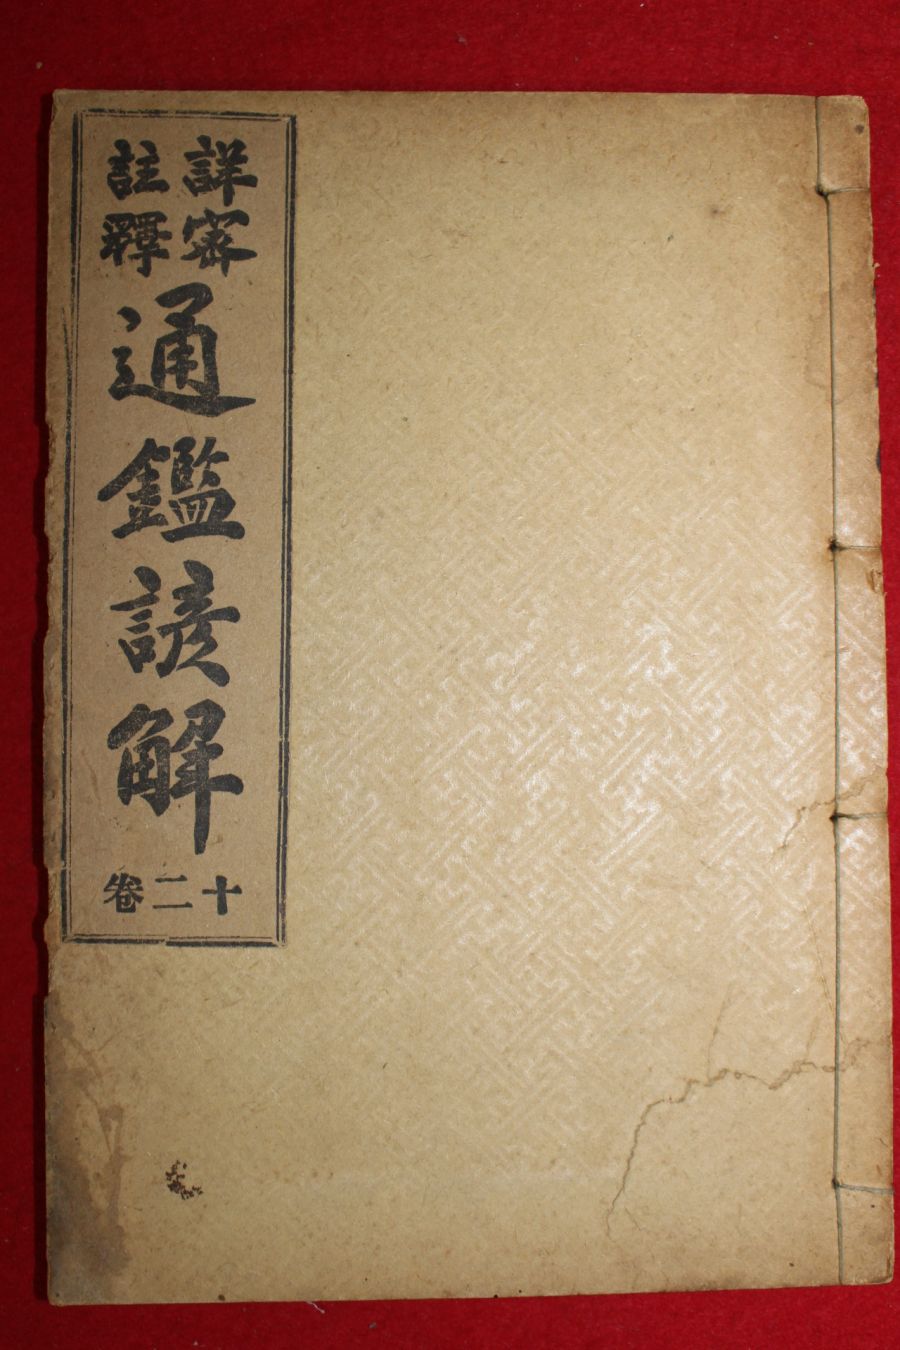 詳密
註釋
通鑑諺解
十二卷